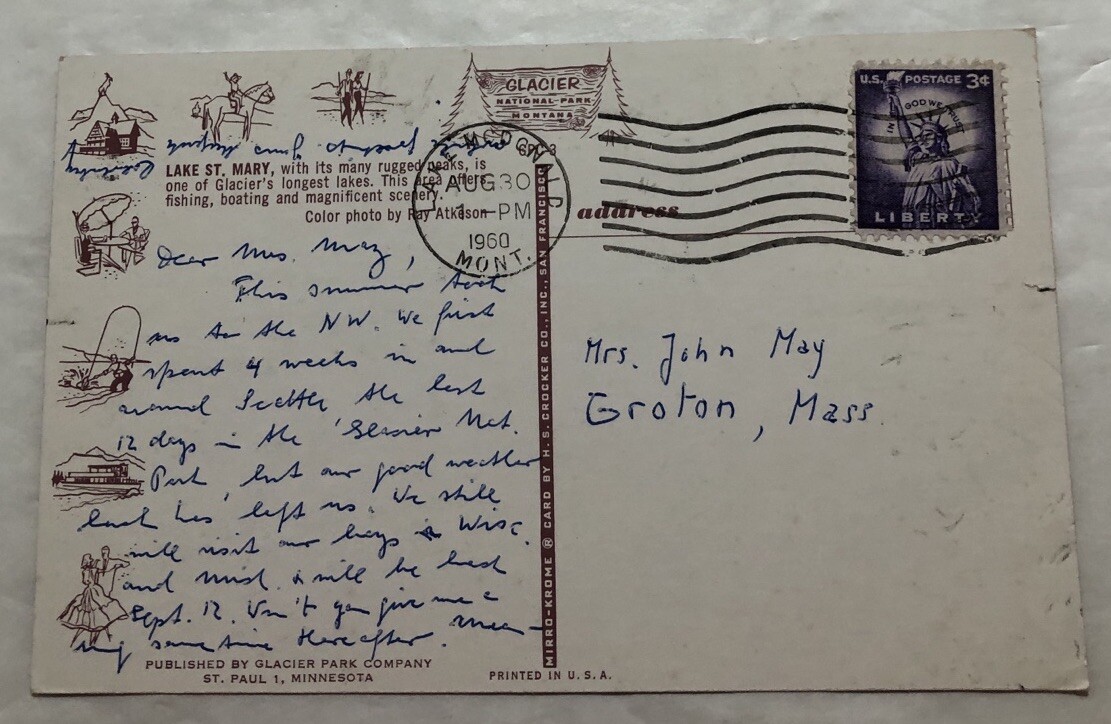 GLACIER
NATIONAL-PARK
MONTANA
GPC-3
U.S. POSTAGE 3¢
IN GOD WE TRUST
LIBERTY
LAKE McDONALD
AUG 30
1 - PM
1960
MONT.
LAKE ST. MARY, with its many rugged peaks, is
one of Glacier's longest lakes. This area offers
fishing, boating and magnificent scenery.
Color photo by Ray Atkeson
address
Dear Mrs. May,
This summer took
us to the NW. We first
spent 4 weeks in and
around Seattle, the last
12 days in the Glacier Nat.
Park, but our good weather
luck has left us. We still
will visit our boys in Wisc.
and Mich. & will be back
Sept. 12. Won't you give me a
ring sometime thereafter.
Mrs. John May
Groton, Mass.
MIRRO-KROME ® CARD BY H. S. CROCKER CO., INC., SAN FRANCISCO
PUBLISHED BY GLACIER PARK COMPANY
ST. PAUL 1, MINNESOTA
PRINTED IN U. S. A.